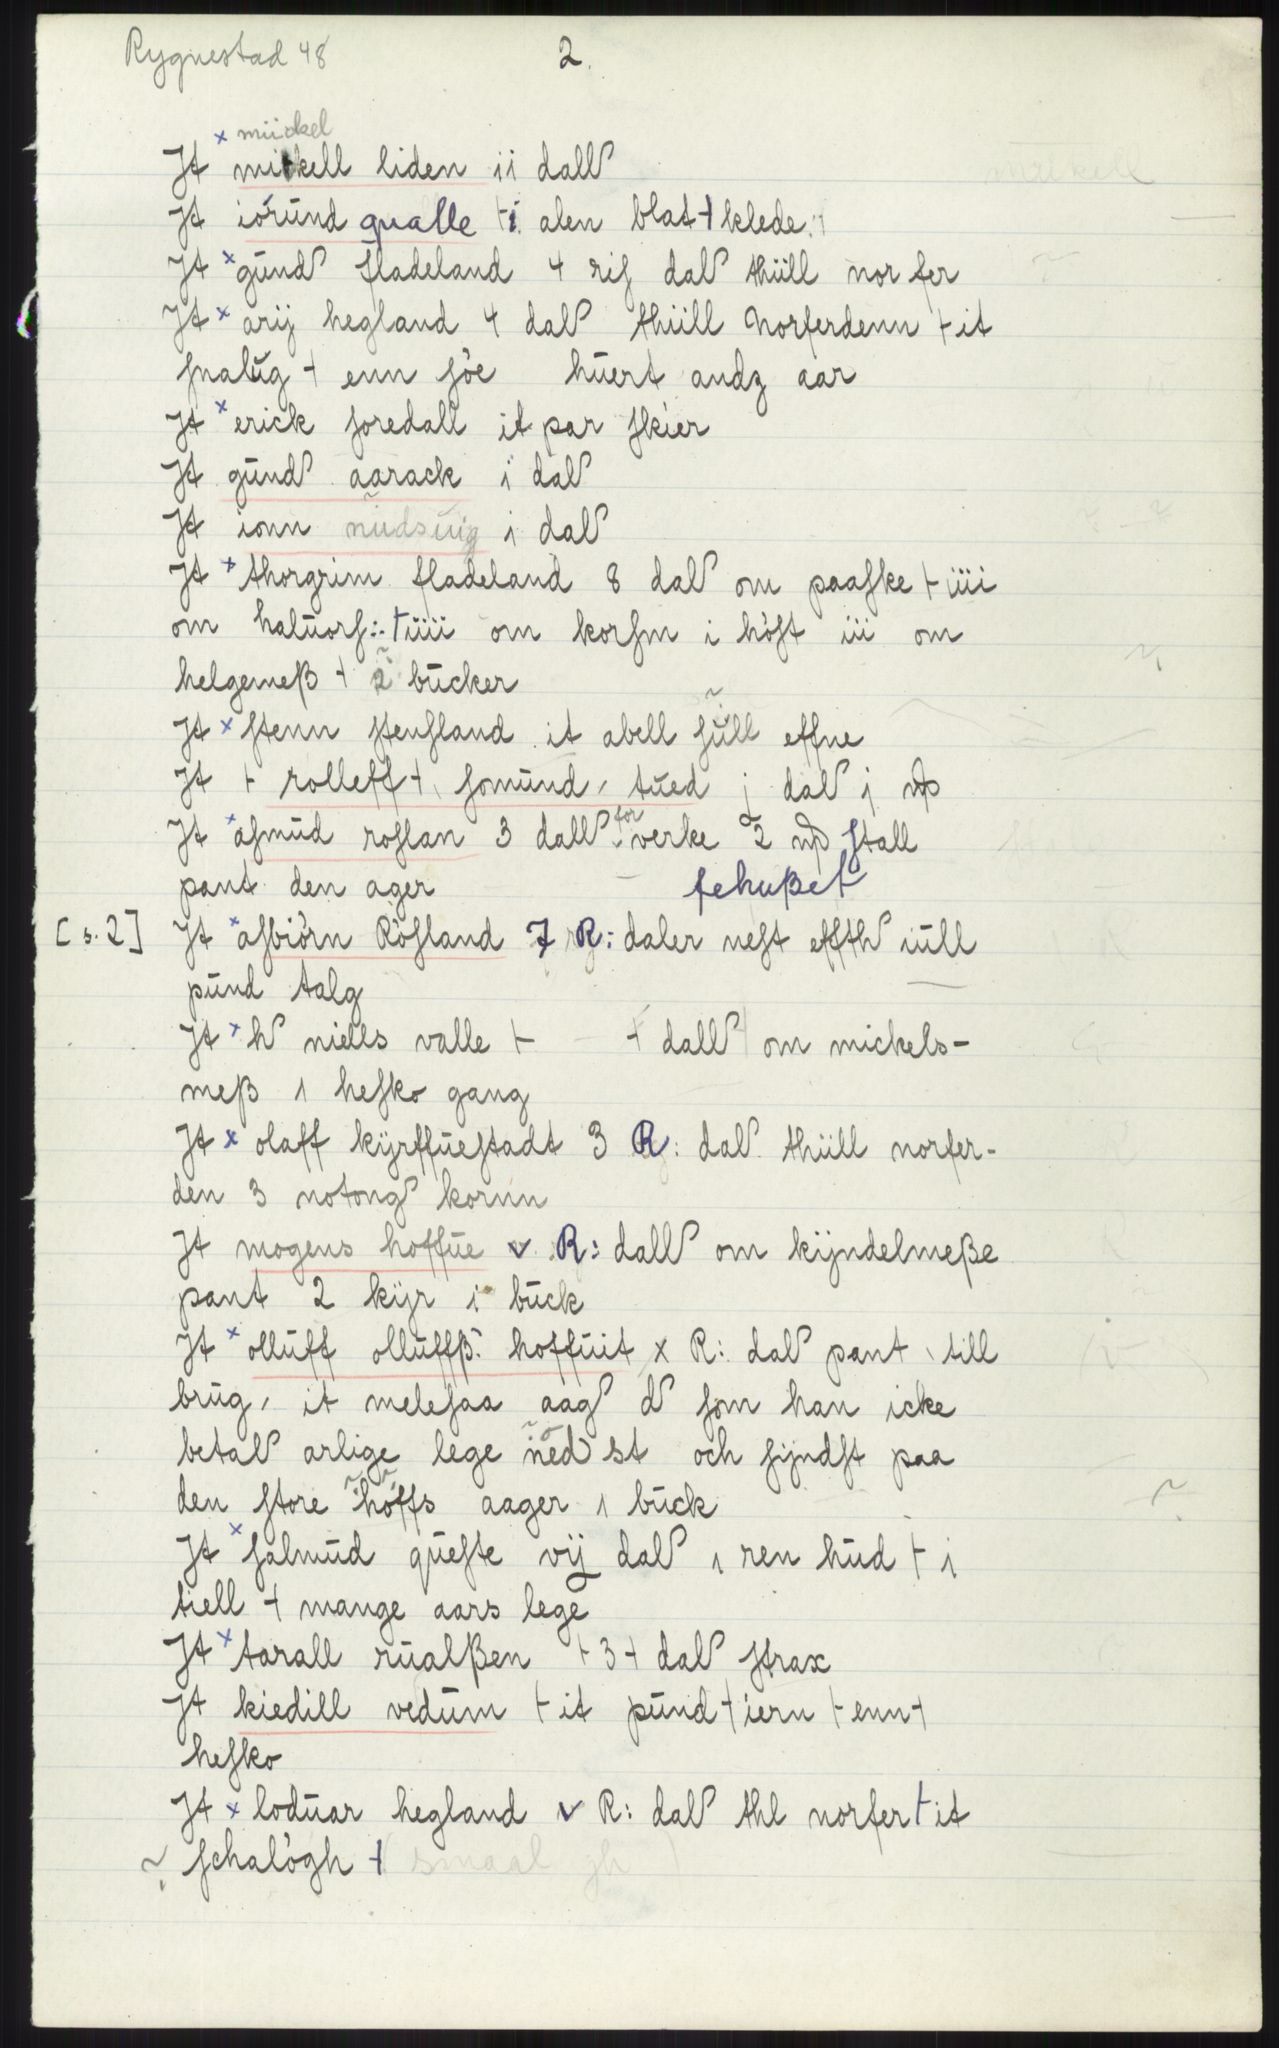 Rygnestad 48
2.
miickel
Jt x mickell liden ii dall
Jt iórund qualle ⊢ i alen blat klede
Jt x gund fladeland 4 rig dal thiill nor fer
Jt x arij hegland 4 dal thiill Norferdenn ⊢ it
smalug + enn ſóe huert andz aar
Jt x erick foredall it par ſkier
Jt gund aarack i dal
Jt ionn nudsuig i dal
Jt x thorgrim fladeland 8 dal om paaſke ⊢ iiii
om haluorſ: ⊢ iiii om korſm i hóſt iii om
helgemeß + 2 bucker
Jt x ſtenn ſtenſland it abell full effne
Jt ⊢ rolleff + ſomund tued j dal j
Jt x aſmud roſlan 3 dall for verke 2 ſtall
pant den ager fehußet
[s. 2] Jt x aſbiórn Róſland 7 R: daler neſt effth iull
pund talg
Jt x h niells valle ⊢ + dall om mickels-
meß 1 heſko gang
Jt x olaff kijrffueſtadt 3 R: dal thiill norfer-
den 3 notong kornn
Jt mogens hoffue v R: dall om kijndelmeße
pant 2 kijr i buck
Jt x olluff olluffß hoffuit x R: dal pant till
brug, it meleſaa aag d ſom han icke
betal arlige lege ned st och ſijndſt paa
den ſtore hóffs aager 1 buck
Jt x ſalmud queſte vij dal 1 ren hud ⊢ j
tiell + mange aars lege
Jt x tarall rualßen ⊢ 3 + dal ſtrax
Jt kiedill vedum ⊢ it pund + iern ⊢ enn +
heſko
Jt x loduar hegland v R: dal thl norfer ⊢ it
ſchalógh + smaal gh